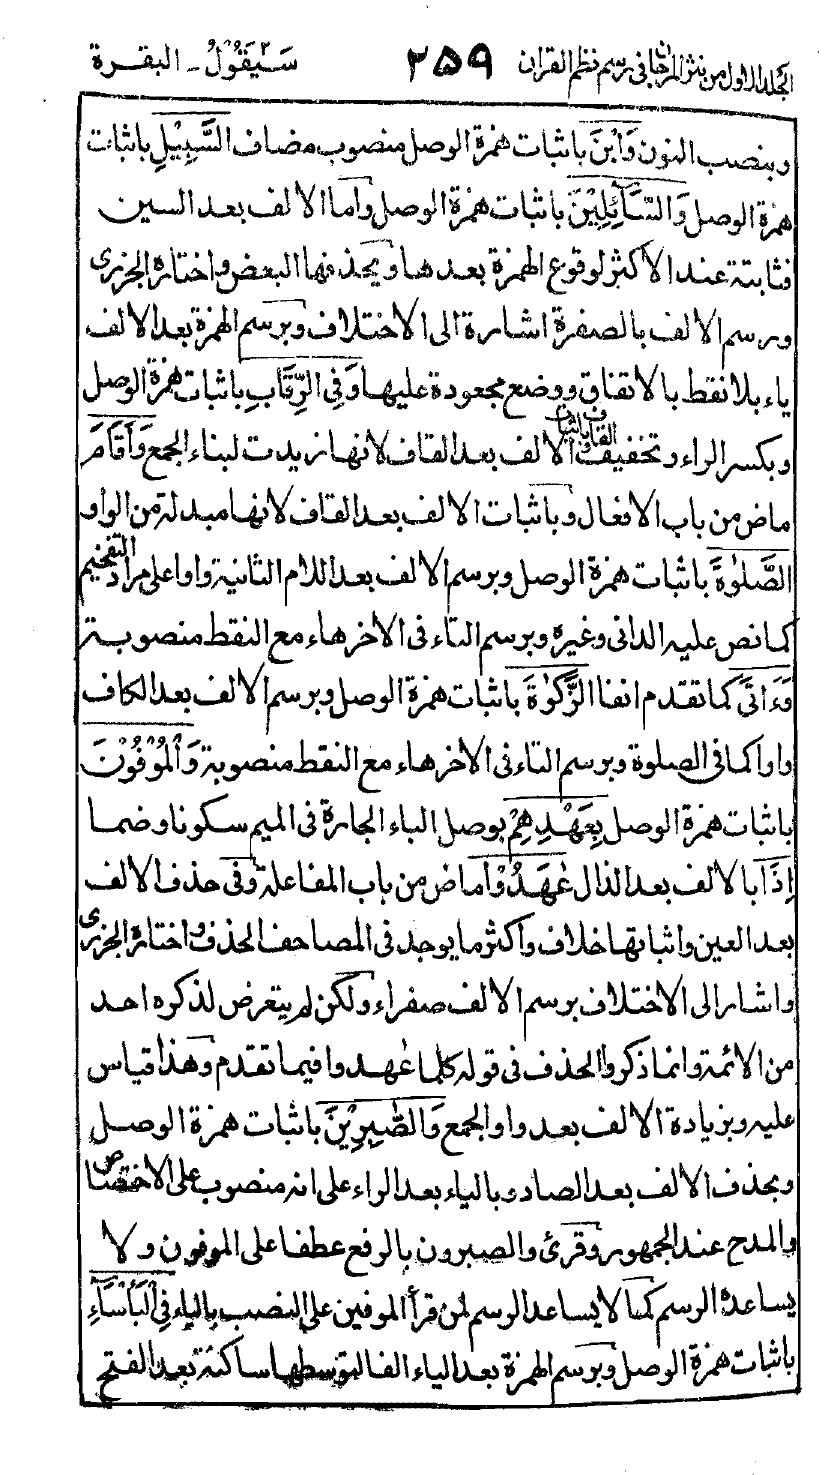 الجلد الاول من نثر المرجان فى رسم نظم القران ٢٥٩ سَيَقُوْلُ ٢ ـ البقرة
وبنصب النون وَابْنَ باثبات همزة الوصل منصوب مضاف السَّبِيْلِ باثبات
همزة الوصل وَالسَّآئِلِيْنَ باثبات همزة الوصل واما الالف بعد السين
فثابتة عند الاكثر لوقوع الهمزة بعدها ويحذفها البعض واختاره الجزرى
ورسم الالف بالصفرة اشارة الى الاختلاف وبرسم الهمزة بعد الالف
ياء بلا نقط بالاتفاق ووضع مجعودة عليها وَفِى الرِّقَابِ باثبات همزة الوصل
وبكسر الراء وتخفيف القاف وباثبات الالف بعد القاف لانها زيدت لبناء الجمع وَأَقَامَ
ماض من باب الافعال وباثبات الالف بعد القاف لانها مبدلة من الواو
الصَّلٰوةَ باثبات همزة الوصل وبرسم الالف بعد اللام الثانية واوا على مراد التفخيم
كما نص عليه الدانى وغيره وبرسم التاء فى الاخر هاء مع النقط منصوبة
وَءَاتَى كما تقدم انفا الزَّكٰوةَ باثبات همزة الوصل وبرسم الالف بعد الكاف
واوا كما فى الصلوة وبرسم التاء فى الاخر هاء مع النقط منصوبة وَالْمُوْفُوْنَ
باثبات همزة الوصل بِعَهْدِهِمْ بوصل الباء الجارة فى الميم سكونا وضما
إِذَا بالالف بعد الذال عٰهَدُوْا ماض من باب المفاعلة وفى حذف الالف
بعد العين واثباتها خلاف واكثر ما يوجد فى المصاحف الحذف واختاره الجزرى
واشار الى الاختلاف برسم الالف صفراء ولكن لم يتعرض لذكره احد
من الائمة وانما ذكروا الحذف فى قوله كلما عٰهدوا فيما تقدم وهذا قياس
عليه وبزيادة الالف بعد واو الجمع وَالصّٰبِرِيْنَ باثبات همزة الوصل
وبحذف الالف بعد الصاد وبالياء بعد الراء على انه منصوب على الاختصاص
والمدح عند الجمهور وقرئ والصبرون بالرفع عطفا على الموفون ولا
يساعده الرسم كما لا يساعد الرسم لمن قرأ الموفين على النصب بالياء فِى الْبَأْسَآءِ
باثبات همزة الوصل وبرسم الهمزة بعد الياء الفا لتوسطها ساكنة بعد الفتح